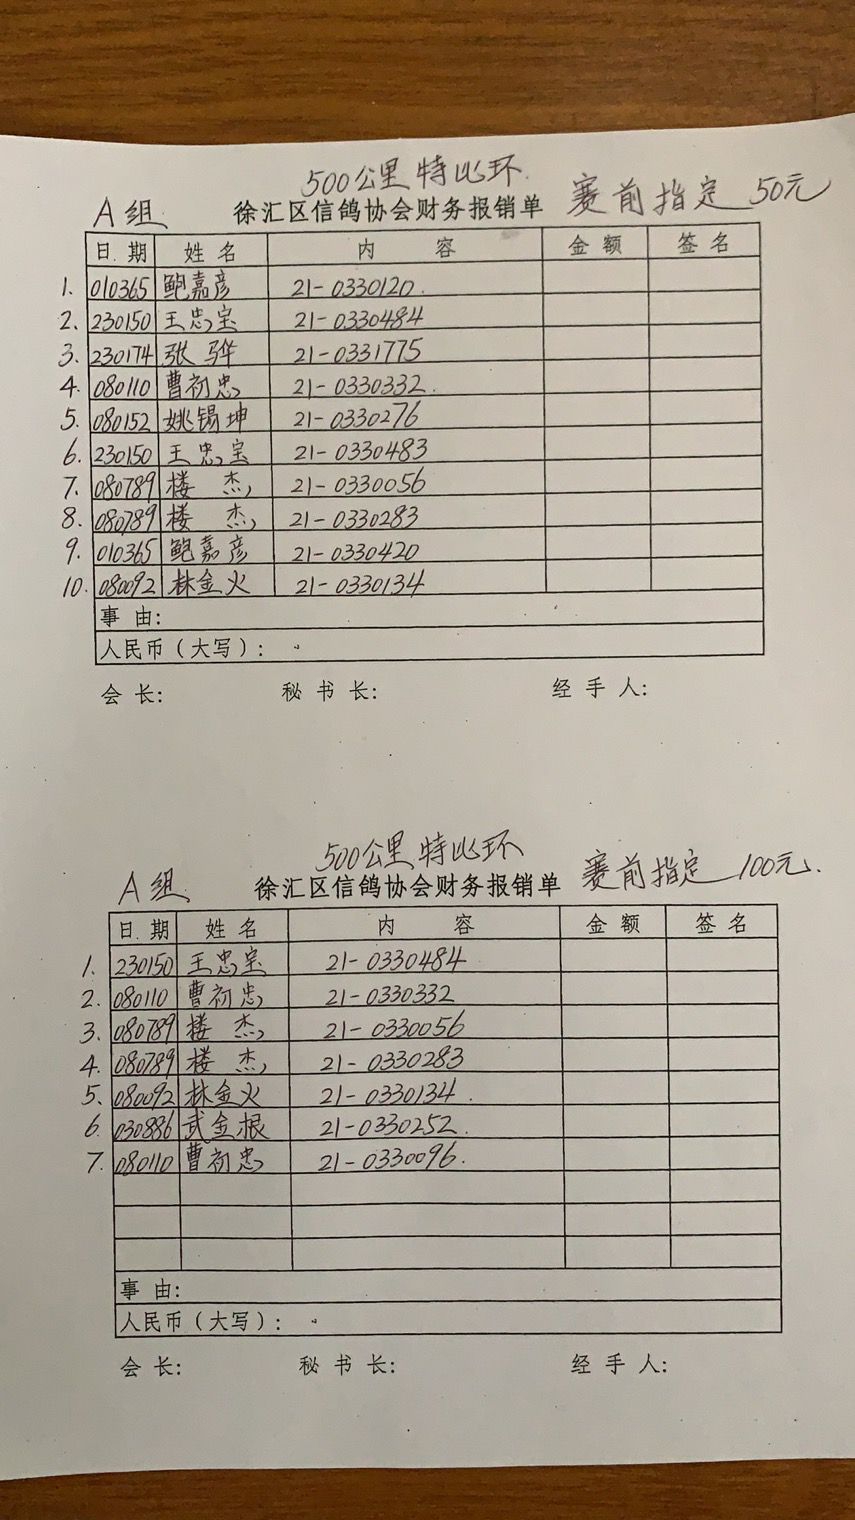 500公里特比环
A组 徐汇区信鸽协会财务报销单 赛前指定 50元
日 期 姓 名 内 容 金 额 签 名
1. 010365 鲍嘉彦 21-0330120.
2、 230150 王忠宝 21-0330484
3、 230174 张 骅 21-0331775
4. 080110 曹初忠 21-0330332.
5、 080152 姚锡坤 21-0330276
6. 230150 王忠宝 21-0330483
7. 080789 楼 杰 21-0330056
8. 080789 楼 杰 21-0330283
9. 010365 鲍嘉彦 21-0330420
10. 080092 林金火 21-0330134
事 由:
人民币(大写):
会 长: 秘 书 长: 经 手 人:
500公里特比环
A组 徐汇区信鸽协会财务报销单 赛前指定 100元.
日 期 姓 名 内 容 金 额 签 名
1. 230150 王忠宝 21-0330484
2. 080110 曹初忠 21-0330332
3. 080789 楼 杰 21-0330056
4. 080789 楼 杰 21-0330283
5、 080092 林金火 21-0330134.
6. 030886 武金根 21-0330252.
7. 080110 曹初忠 21-0330096.
事 由:
人民币(大写):
会 长: 秘 书 长: 经 手 人: